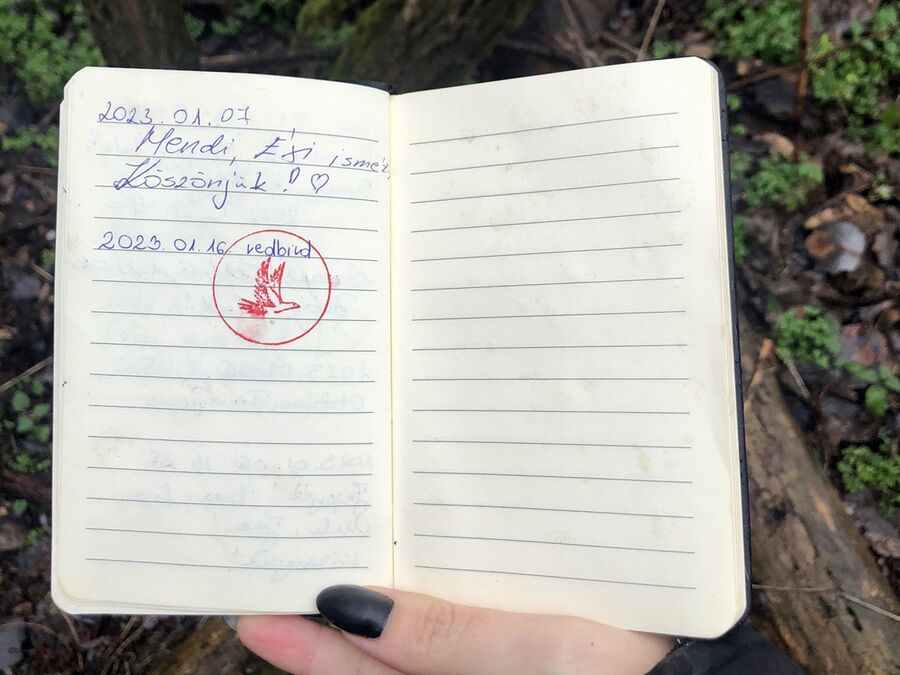 2023. 01. 07
Mendi, Évi ismét,
Köszönjük! ♡
2023. 01. 16. redbird